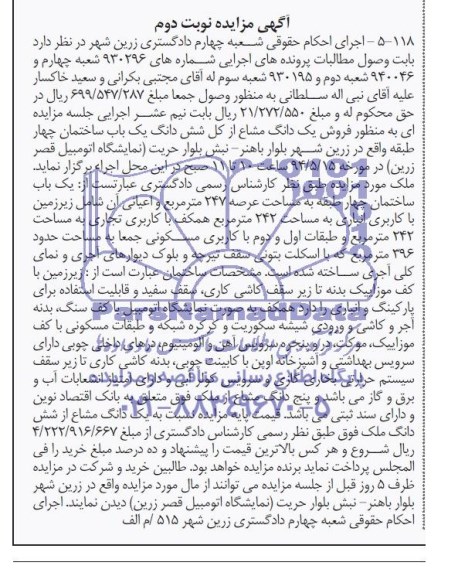 آگهی مزایده نوبت دوم
۵-۱۱۸ - اجرای احکام حقوقی شـعبه چهارم دادگستری زرین شهر در نظر دارد
بابت وصول مطالبات پرونده های اجرایی شـماره های ۹۳۰۲۹۶ شعبه چهارم و
۹۴۰۰۴۶ شعبه دوم و ۹۳۰۱۹۵ شعبه سوم له آقای مجتبی بکرانی و سعید خاکسار
علیه آقای نبی اله سـلطانی به منظور وصول جمعا مبلغ ۶۹۹/۵۴۷/۲۸۷ ریال در
حق محکوم له و مبلغ ۲۱/۲۷۲/۵۵۰ ریال بابت نیم عشـر اجرایی جلسه مزایده
ای به منظور فروش یک دانگ مشاع از کل شش دانگ یک باب ساختمان چهار
طبقه واقع در زرین شـهر بلوار باهنر- نبش بلوار حریت (نمایشگاه اتومبیل قصر
زرین) در مورخه ۹۴/۵/۱۵ ساعت ۱۰ تا ۱۱ صبح در این محل اجراء برگزار نماید.
ملک مورد مزایده طبق نظر کارشناس رسمی دادگستری عبارتست از: یک باب
ساختمان چهار طبقه به مساحت عرصه ۲۴۷ مترمربع و اعیانی آن شامل زیرزمین
با کاربری انباری به مساحت ۲۴۲ مترمربع همکف با کاربری تجاری به مساحت
۲۴۲ مترمربع و طبقات اول و دوم با کاربری مسـکونی جمعا به مساحت حدود
۳۹۶ مترمربع که با اسکلت بتونی سقف تیرچه و بلوک دیوارهای آجری و نمای
کلی آجری سـاخته شده است. مشخصات ساختمان عبارت است از: زیرزمین با
کف موزاییک بدنه تا زیر سقف کاشی کاری، سقف سفید و قابلیت استفاده برای
پارکینگ و انباری را دارد همکف به صورت نمایشگاه اتومبیل با کف سنگ، بدنه
آجر و کاشی و ورودی شیشه سکوریت و کرکره شبکه و طبقات مسکونی با کف
موزاییک، موکت، در و پنجره آهن و آلومینیوم، درهای داخلی چوبی دارای
سرویس بهداشتی و آشپزخانه اوپن با کابینت چوبی، بدنه کاشی کاری تا زیر سقف
سیستم حرارتی بخاری گازی و سرویس کولر آبی و دارای امتیاز انشعابات آب و
برق و گاز می باشد و پنج دانگ مشاع از ملک فوق متعلق به بانک اقتصاد نوین
و دارای سند ثبتی می باشد. قیمت پایه مزایده نسبت به یک دانگ مشاع از شش
دانگ ملک فوق طبق نظر رسمی کارشناس دادگستری از مبلغ ۴/۲۲۲/۹۱۶/۶۶۷
ریال شـروع و هر کس بالاترین قیمت را پیشنهاد و ده درصد مبلغ خرید را فی
المجلس پرداخت نماید برنده مزایده خواهد بود. طالبین خرید و شرکت در مزایده
ظرف ۵ روز قبل از جلسه مزایده می توانند از مال مورد مزایده واقع در زرین شهر
بلوار باهنر- نبش بلوار حریت (نمایشگاه اتومبیل قصر زرین) دیدن نمایند. اجرای
احکام حقوقی شعبه چهارم دادگستری زرین شهر ۵۱۵ /م الف
ParsNamadData
۰۲۱-۸۸۳۴۹۶۷۰-۵